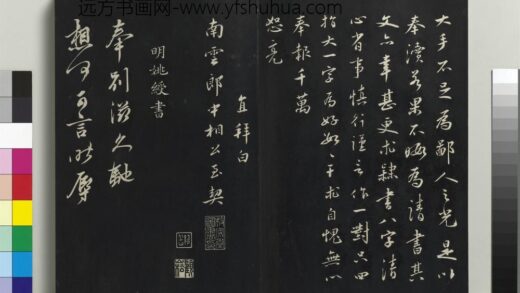 远方书画网-www.yfshuhua.com
大手不足為鄙人之光是以
奉瀆若果不晦為請書其
文亦幸甚更求隸書八字清
心省事慎行謹言作一對只四
指大一字為好如干求自愧無以
奉報千萬
恕亮
宜拜白
南雲郎中相公至契
明姚綬書
奉別滋久馳
想何可言時辱